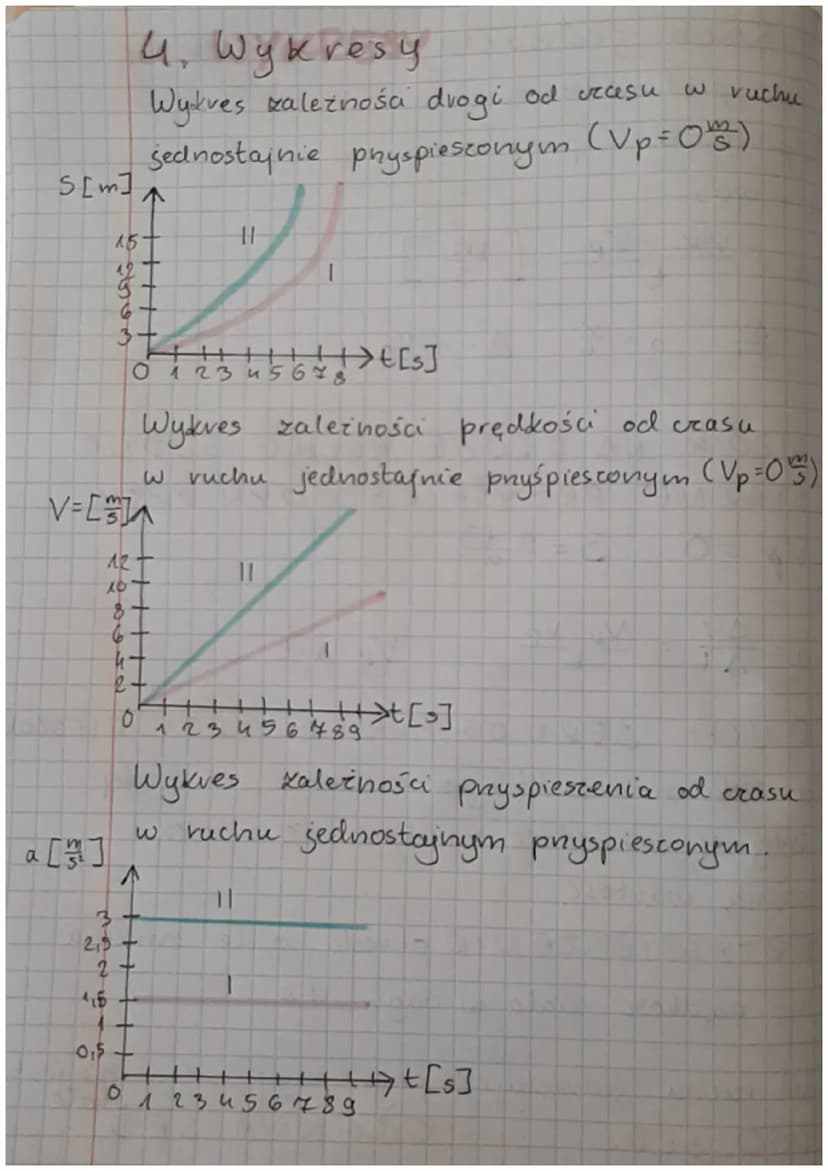 4. Wykresy
Wykres zależności drogi od czasu w ruchu
jednostajnie przyspieszonym (Vp=0 m/s)
S[m]
15
12
9
6
3
II
I
0 1 2 3 4 5 6 7 8
t[s]
Wykres zależności prędkości od czasu
w ruchu jednostajnie przyśpiesconym (Vp=0 m/s)
V=[m/s]
12
10
8
6
4
2
II
I
0 1 2 3 4 5 6 7 8 9
t[s]
Wykres zależności przyspieszenia od czasu
w ruchu jednostajnym przyspiesconym.
a [m/s²]
3
2,5
2
1,5
1
0,5
II
I
0 1 2 3 4 5 6 7 8 9
t[s]